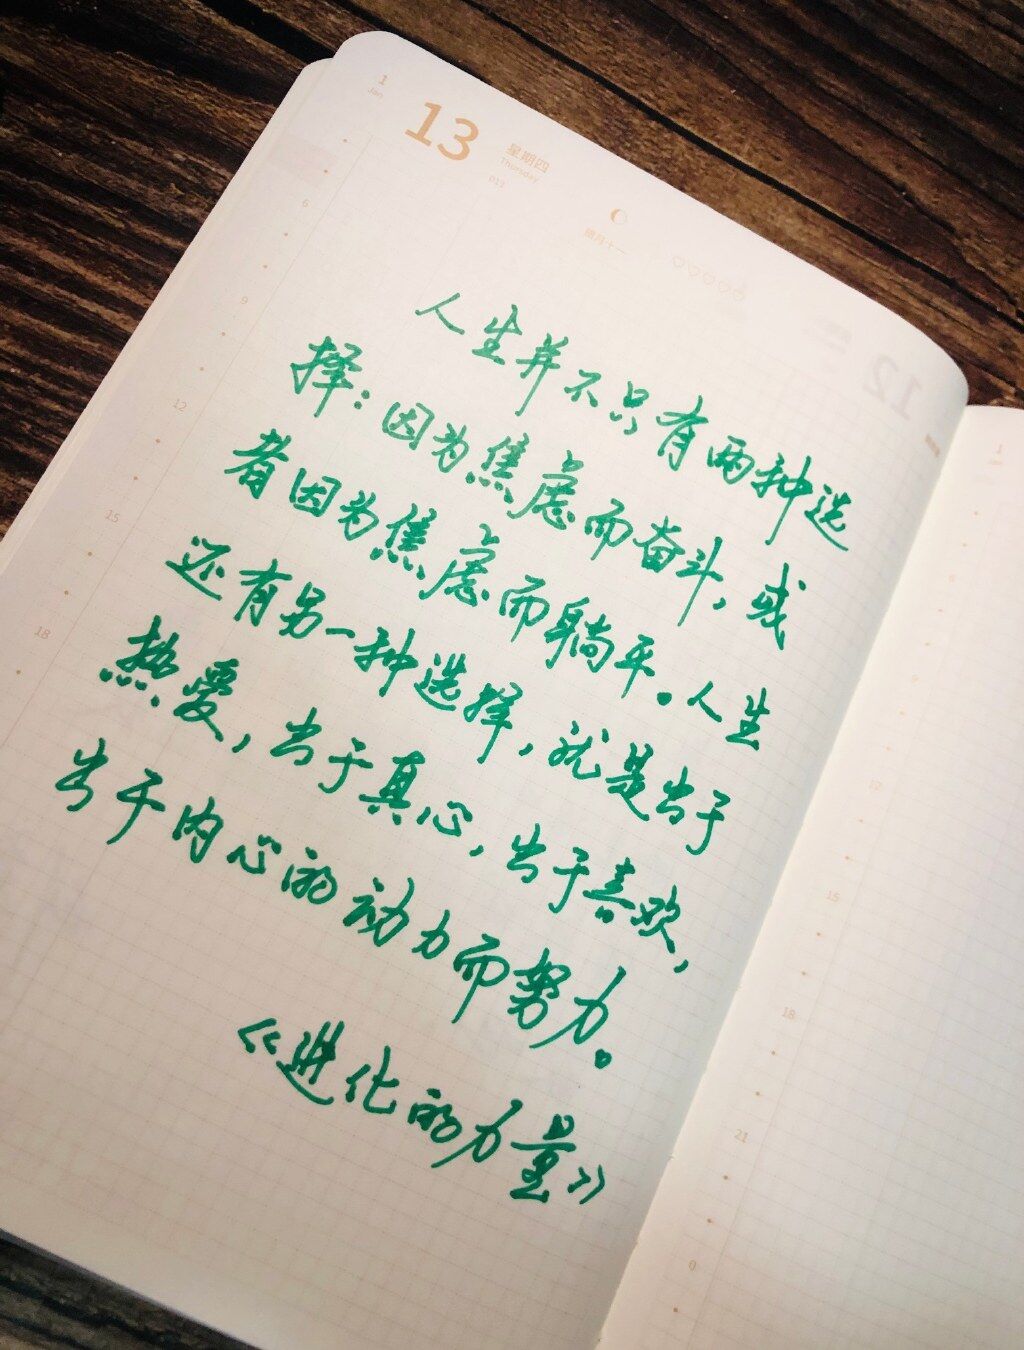 1
Jan
13
星期四
Thursday
013
腊月十一
6
9
12
15
18
人生并不只有两种选
择：因为焦虑而奋斗，或
者因为焦虑而躺平。人生
还有另一种选择，就是出于
热爱，出于真心，出于喜欢，
出于内心的动力而努力。
《进化的力量》
12
1
15
18
21
0